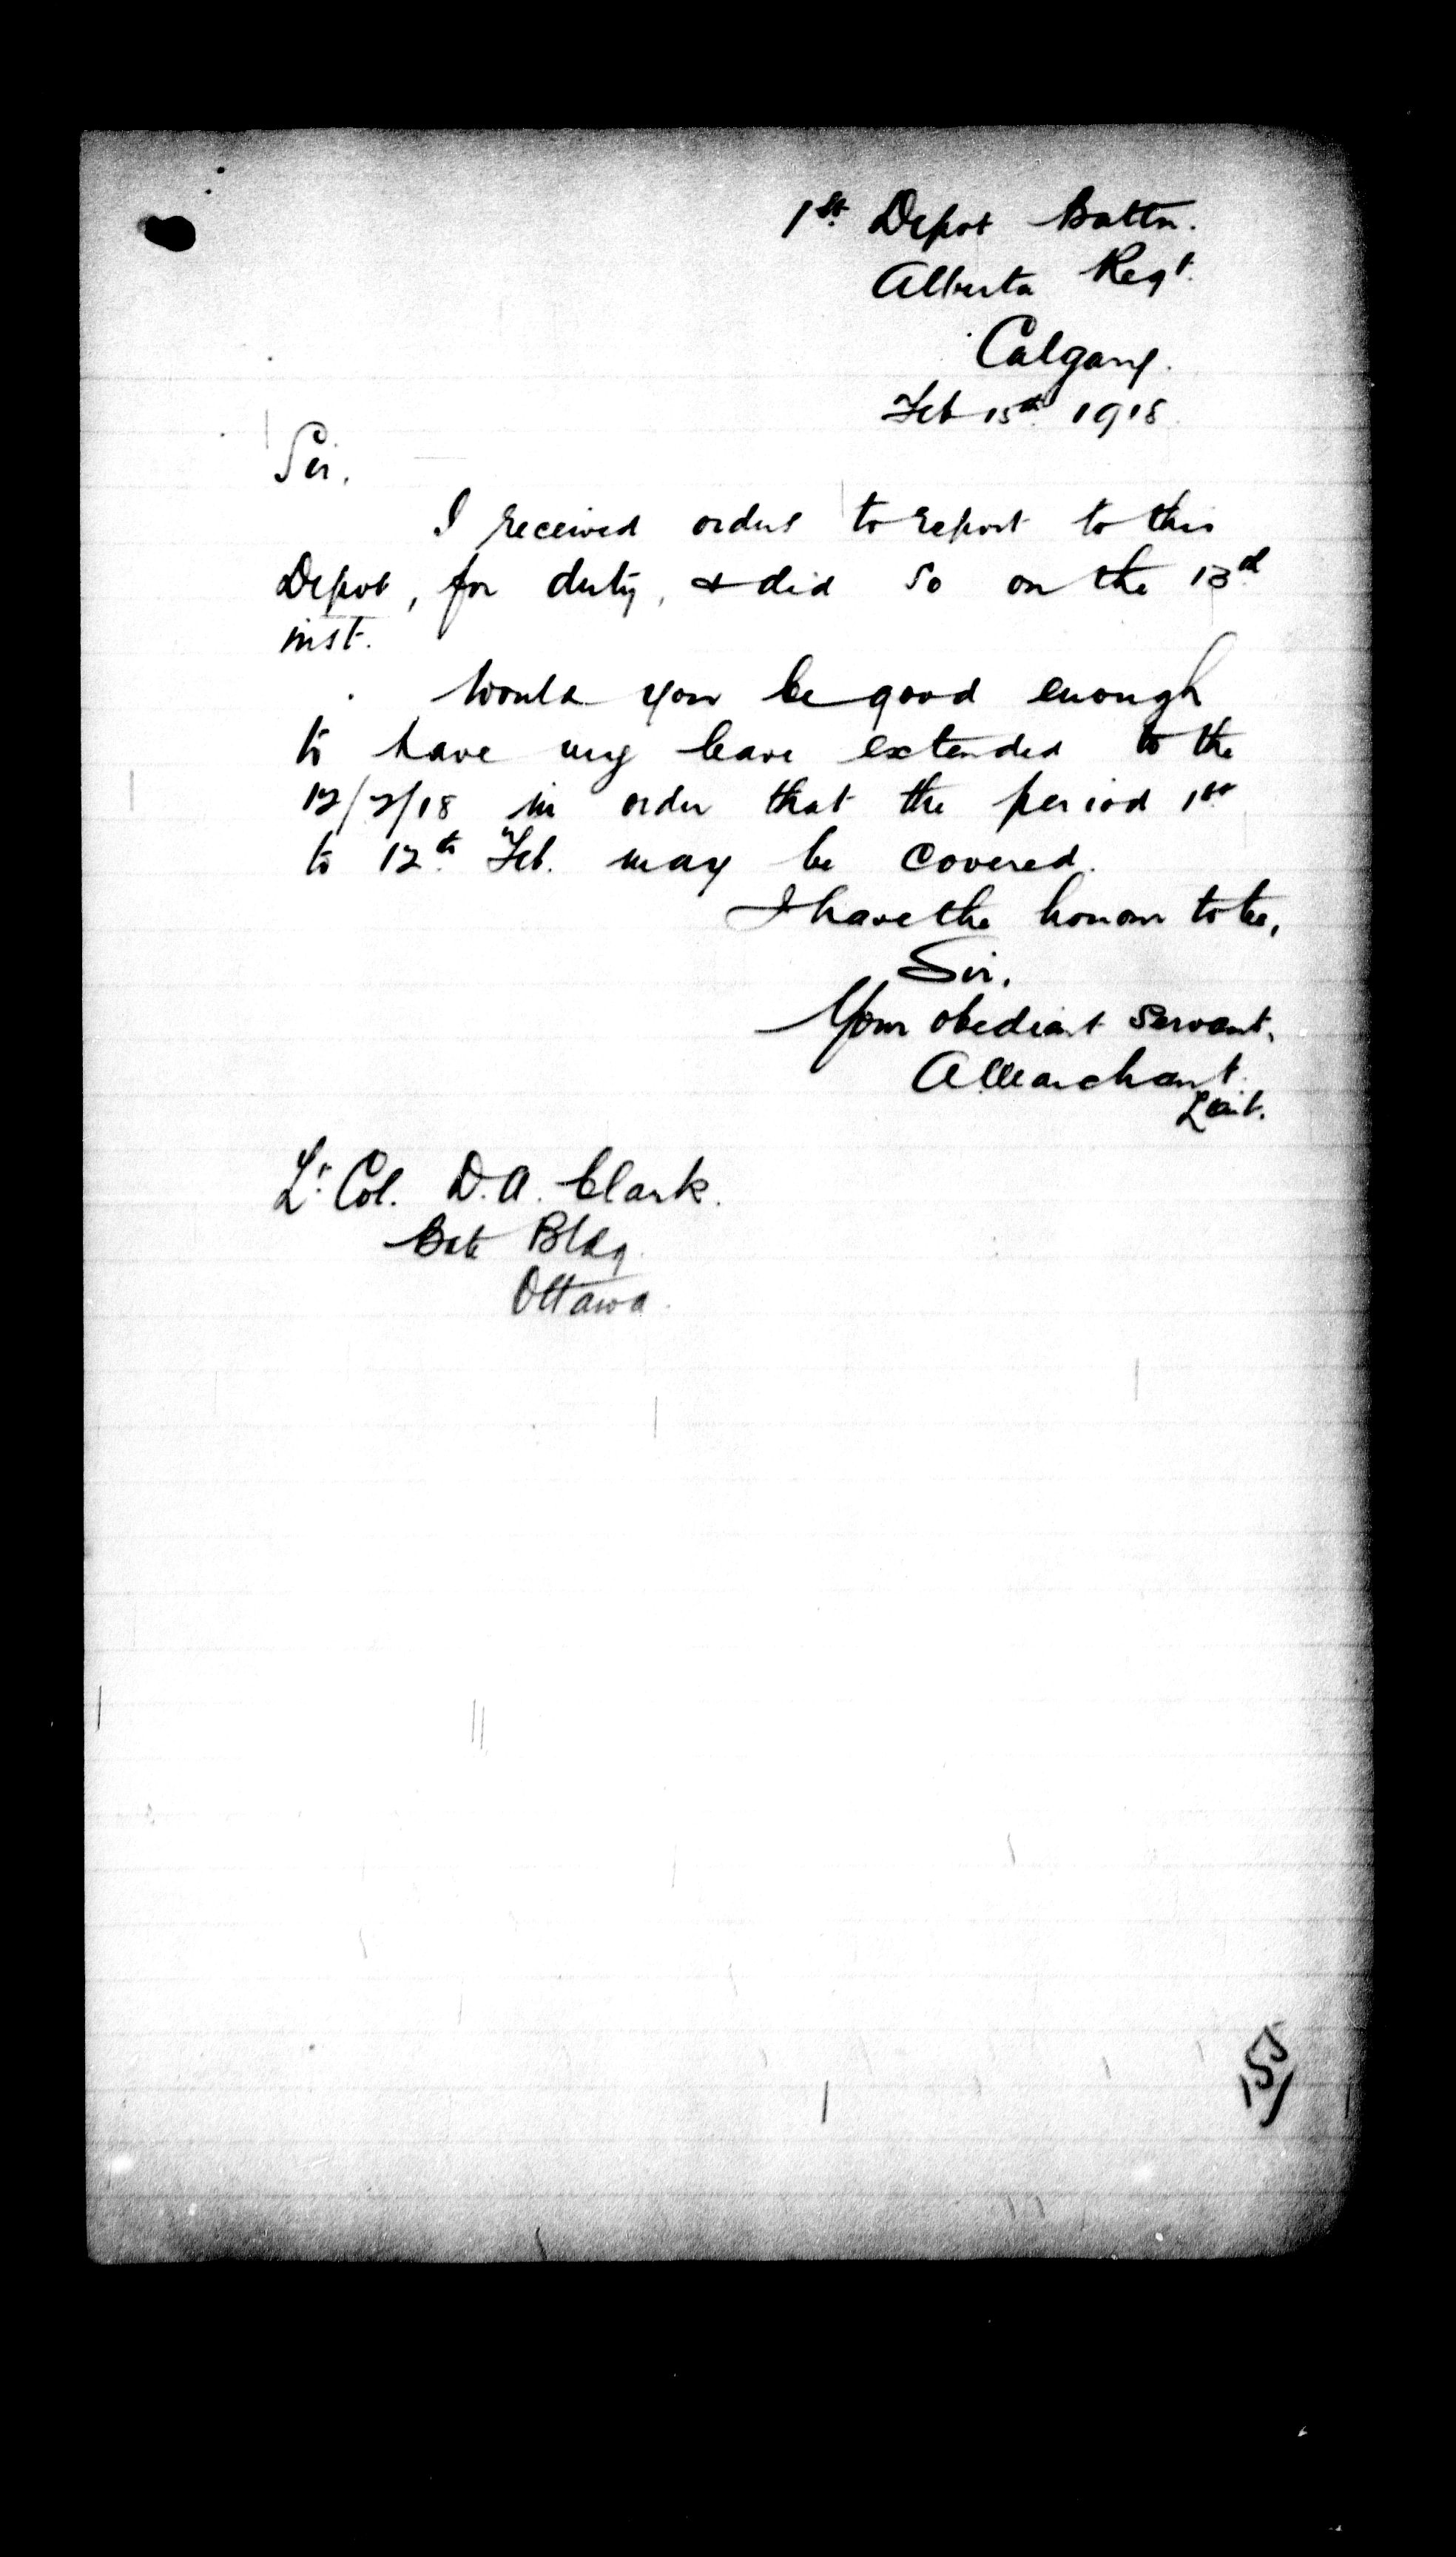 1st Depot Battn.
Alberta Regt.
Calgary.
Feb 15th 1918.
Sir,
I received orders to report to this
Depot, for duty, & did so on the 13d
inst.
Would you be good enough
to have my leave extended to the
12/2/18 in order that the period 1st
to 12th Feb. may be covered.
I have the honour to be,
Sir,
Your obedient servant,
A Marchant.
Lieut.
Lt. Col. D.A. Clark.
Bate Bldg.
Ottawa.